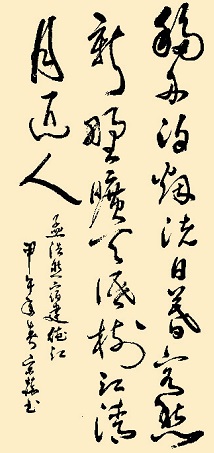 移舟泊烟渚日暮客愁
新野曠天低树江清
月近人
孟浩然宿建德江
甲午年春宗书